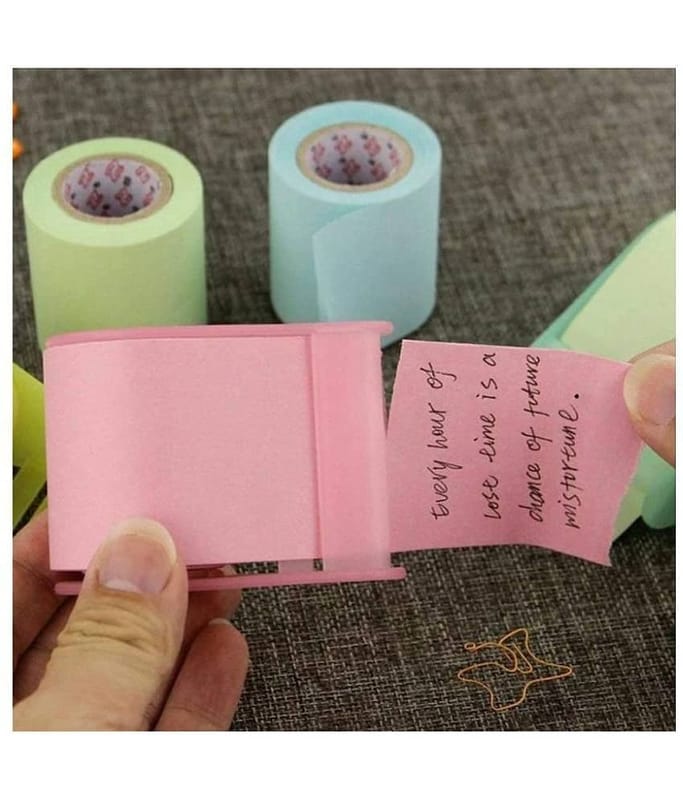 Every hour of
lose time is a
chance of future
misfortune.